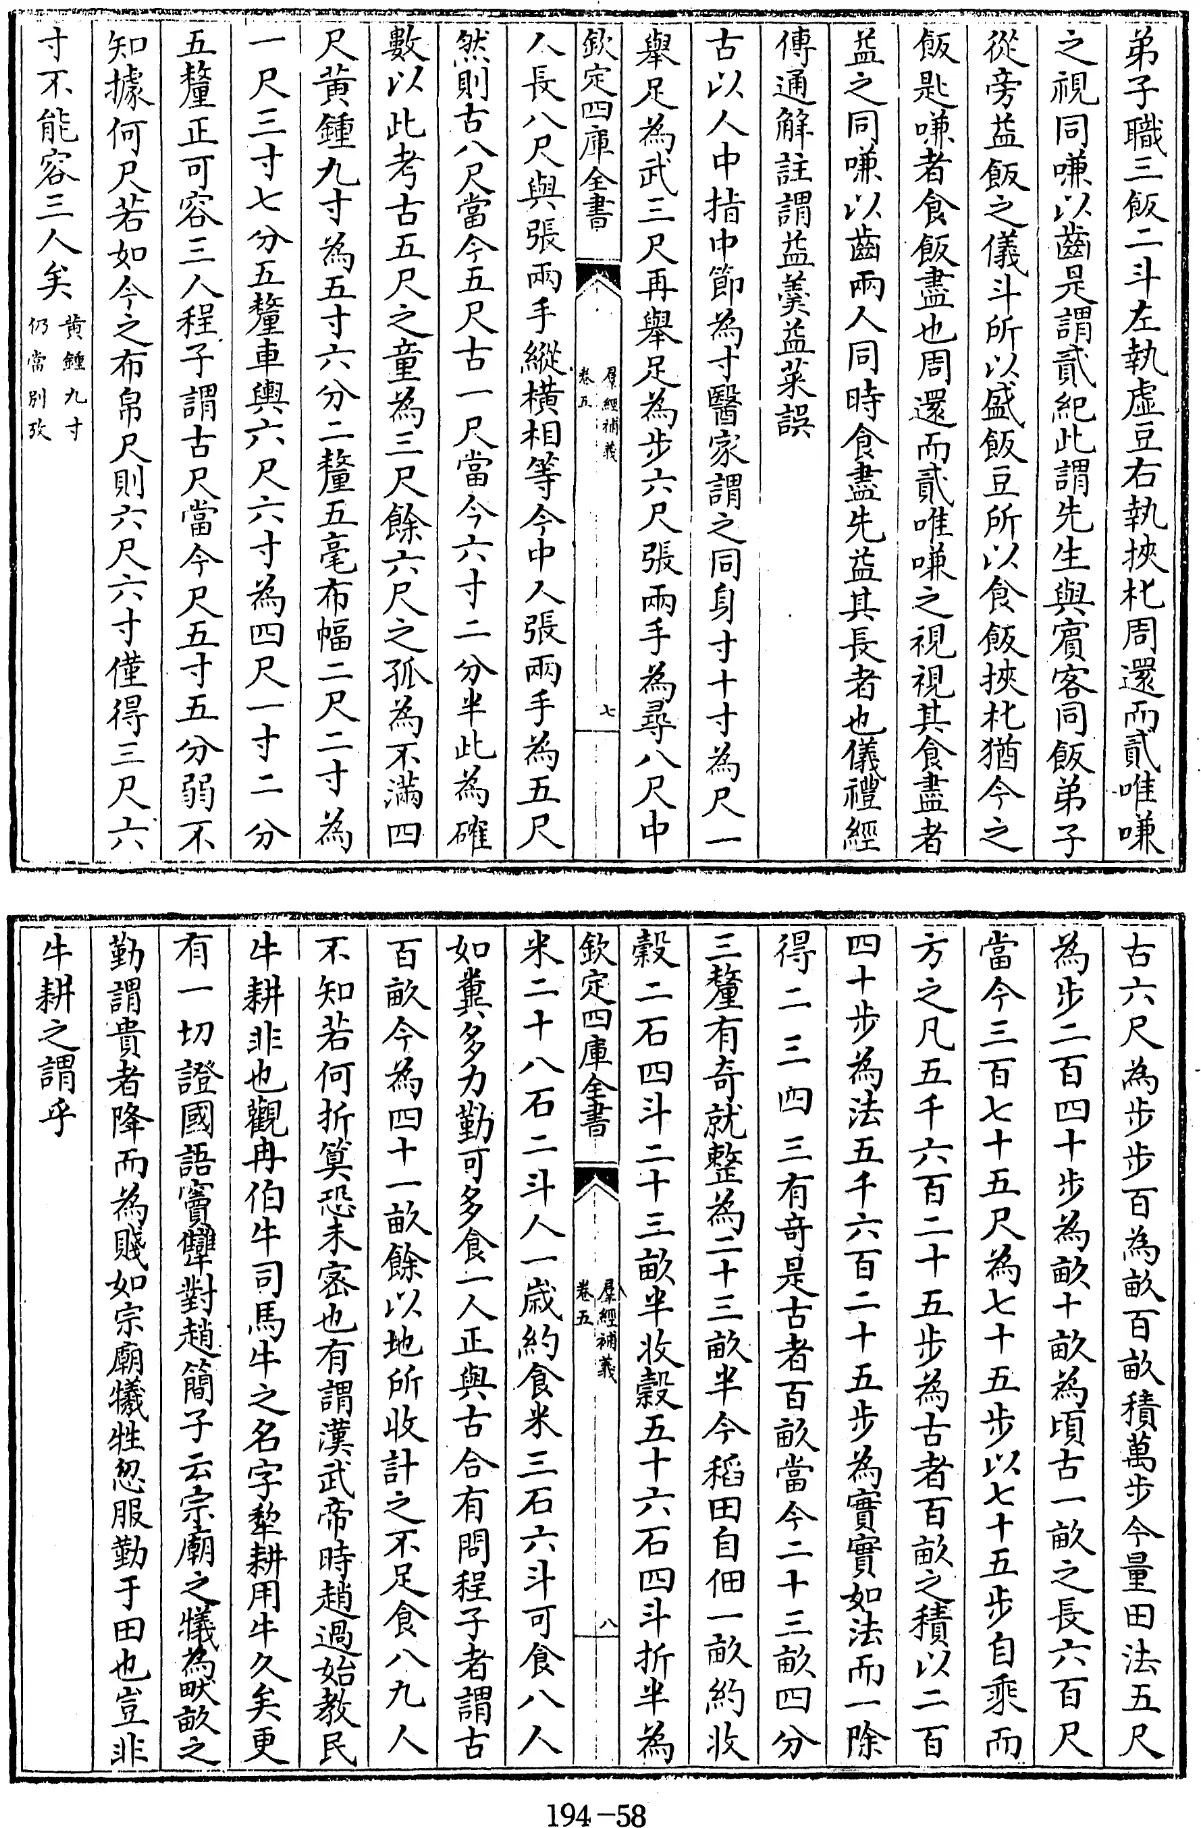 弟子職三飯二斗左執虛豆右執挾朼周還而貳唯嗛
之視同嗛以齒是謂貳紀此謂先生與賓客同飯弟子
從旁益飯之儀斗所以盛飯豆所以食飯挾朼猶今之
飯匙嗛者食飯盡也周還而貳唯嗛之視視其食盡者
益之同嗛以齒兩人同時食盡先益其長者也儀禮經
傳通解註謂益羮益菜誤
古以人中指中節為寸醫家謂之同身寸十寸為尺一
舉足為武三尺再舉足為步六尺張兩手為尋八尺中
欽定四庫全書
羣經補義
卷五
七
人長八尺與張兩手縱橫相等今中人張兩手為五尺
然則古八尺當今五尺古一尺當今六寸二分半此為確
數以此考古五尺之童為三尺餘六尺之孤為不滿四
尺黃鍾九寸為五寸六分二釐五毫布幅二尺二寸為
一尺三寸七分五釐車輿六尺六寸為四尺一寸二分
五釐正可容三人程子謂古尺當今尺五寸五分弱不
知據何尺若如今之布帛尺則六尺六寸僅得三尺六
寸不能容三人矣
黃鍾九寸
仍當別攷
古六尺為步步百為畝百畝積萬步今量田法五尺
為步二百四十步為畝十畝為頃古一畝之長六百尺
當今三百七十五尺為七十五步以七十五步自乘而
方之凡五千六百二十五步為古者百畝之積以二百
四十步為法五千六百二十五步為實實如法而一除
得二三四三有奇是古者百畝當今二十三畝四分
三釐有奇就整為二十三畝半今稻田自佃一畝約收
穀二石四斗二十三畝半收穀五十六石四斗折半為
欽定四庫全書
羣經補義
卷五
八
米二十八石二斗人一歲約食米三石六斗可食八人
如糞多力勤可多食一人正與古合有問程子者謂古
百畝今為四十一畝餘以地所收計之不足食八九人
不知若何折算恐未密也有謂漢武帝時趙過始教民
牛耕非也觀冉伯牛司馬牛之名字犂耕用牛久矣更
有一切證國語竇犨對趙簡子云宗廟之犧為畎畝之
勤謂貴者降而為賤如宗廟犧牲忽服勤于田也豈非
牛耕之謂乎
194-58